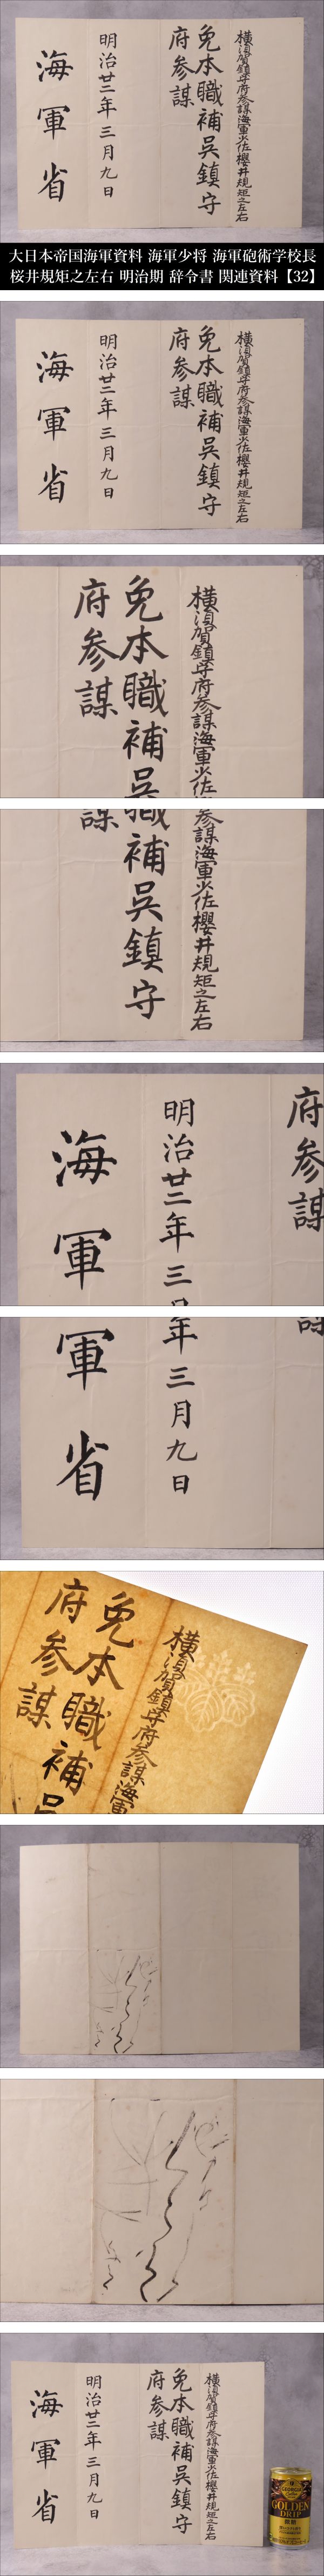 横須賀鎮守府参謀海軍少佐櫻井規矩之左右
免本職補呉鎮守
府参謀
明治廿二年三月九日
海軍省
大日本帝国海軍資料 海軍少将 海軍砲術学校長
桜井規矩之左右 明治期 辞令書 関連資料【32】
横須賀鎮守府参謀海軍少佐櫻井規矩之左右
免本職補呉鎮守
府参謀
明治廿二年三月九日
海軍省
横須賀鎮守府参謀海軍少佐
免本職補呉
府参謀
参謀海軍少佐櫻井規矩之左右
職補呉鎮守
謀
府参謀
明治廿二年三月
海軍
謀
年三月九日
軍省
横須賀鎮守府参謀海軍
免本職補呉
府参謀
横須賀鎮守府参謀海軍少佐櫻井規矩之左右
免本職補呉鎮守
府参謀
明治廿二年三月九日
海軍省
GEORGIA
GOLDEN
DRIP
微糖